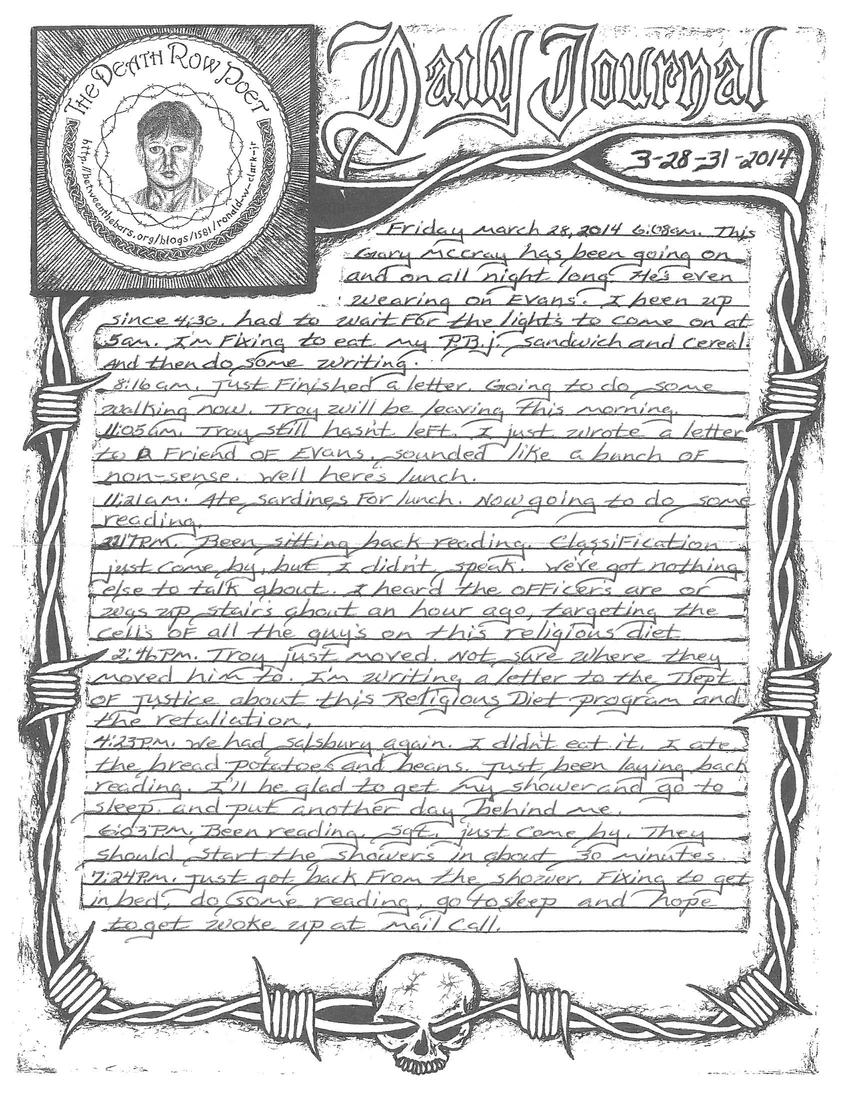 THE DEATH ROW POET
http://betweenthebars.org/blogs/1581/ronald-w-clark-jr
Daily Journal
3-28-31-2014
Friday march 28, 2014 6:08am. This
Gary McCray has been going on
and on all night long. He's even
wearing on Evans. I been up
since 4:30. had to wait For the light's to come on at
5am. I'm Fixing to eat my P.B.j. sandwich and cereal.
And then do some writing.
8:16am. Just Finished a letter. Going to do some
walking now. Troy will be leaving this morning.
11:05am. Troy still hasn't left. I just wrote a letter
to a Friend of Evans. sounded like a bunch of
non-sense. Well here's lunch.
11:21am. Ate sardines For lunch. Now going to do some
reading.
Been sitting back reading. Classification
just come by, but I didn't speak. We've got nothing
else to talk about. I heard the officers are or
was up stairs about an hour ago, targeting the
cells of all the guy's on this religious diet.
2:46Pm. Troy just moved. Not sure where they
moved him to. I'm writing a letter to the Dept
of Justice about this Religious Diet program and
the retaliation.
4:23Pm. We had salsbury again. I didn't eat it. I ate
the bread potatoes and beans. Just been laying back
reading. I'll be glad to get my shower and go to
sleep and put another day behind me.
6:03Pm. Been reading. Sgt. just come by. They
should start the shower's in about 30 minutes.
7:24Pm. Just got back From the shower. Fixing to get
in bed, do some reading, go to sleep and hope
to get woke up at mail call.